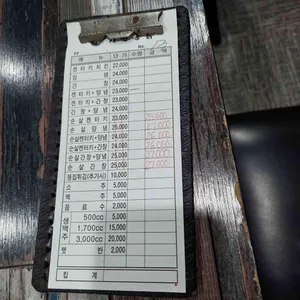 No. 12
메 뉴 단 가 수량 금 액
켄터키치킨 22,000
양 념 24,000
간 장 24,000
켄터키+양념 23,000
켄터키+간장 23,000
간장+양념 24,000
순살켄터키 23,000
순살양념
순살켄터키+양념 24,000
순살켄터키+간장 24,000
순살간장+양념 25,000
순살간장 25,000
똥집튀김(추가시) 10,000
소 주 5,000
맥 주 5,000
음 료 수 2,000
생맥주 500cc 5,000
1,700cc 15,000
3,000cc 20,000
햇 반 2,000
합 계